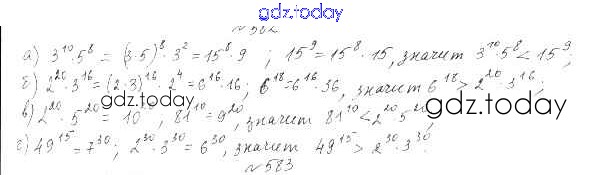 gdz.today
№ 582
а) 3¹⁰·5⁸ = (3·5)⁸·3² = 15⁸·9 ; 15⁹ = 15⁸·15, значит 3¹⁰·5⁸ < 15⁹;
б) 2²⁰·3¹⁶ = (2·3)¹⁶·2⁴ = 6¹⁶·16; 6¹⁸ = 6¹⁶·36, значит 6¹⁸ > 2²⁰·3¹⁶;
в) 2²⁰·5²⁰ = 10²⁰, 81¹⁰ = 9²⁰, значит 81¹⁰ < 2²⁰·5²⁰,
gdz.today gdz.today
г) 49¹⁵ = 7³⁰; 2³⁰·3³⁰ = 6³⁰, значит 49¹⁵ > 2³⁰·3³⁰.
№ 583